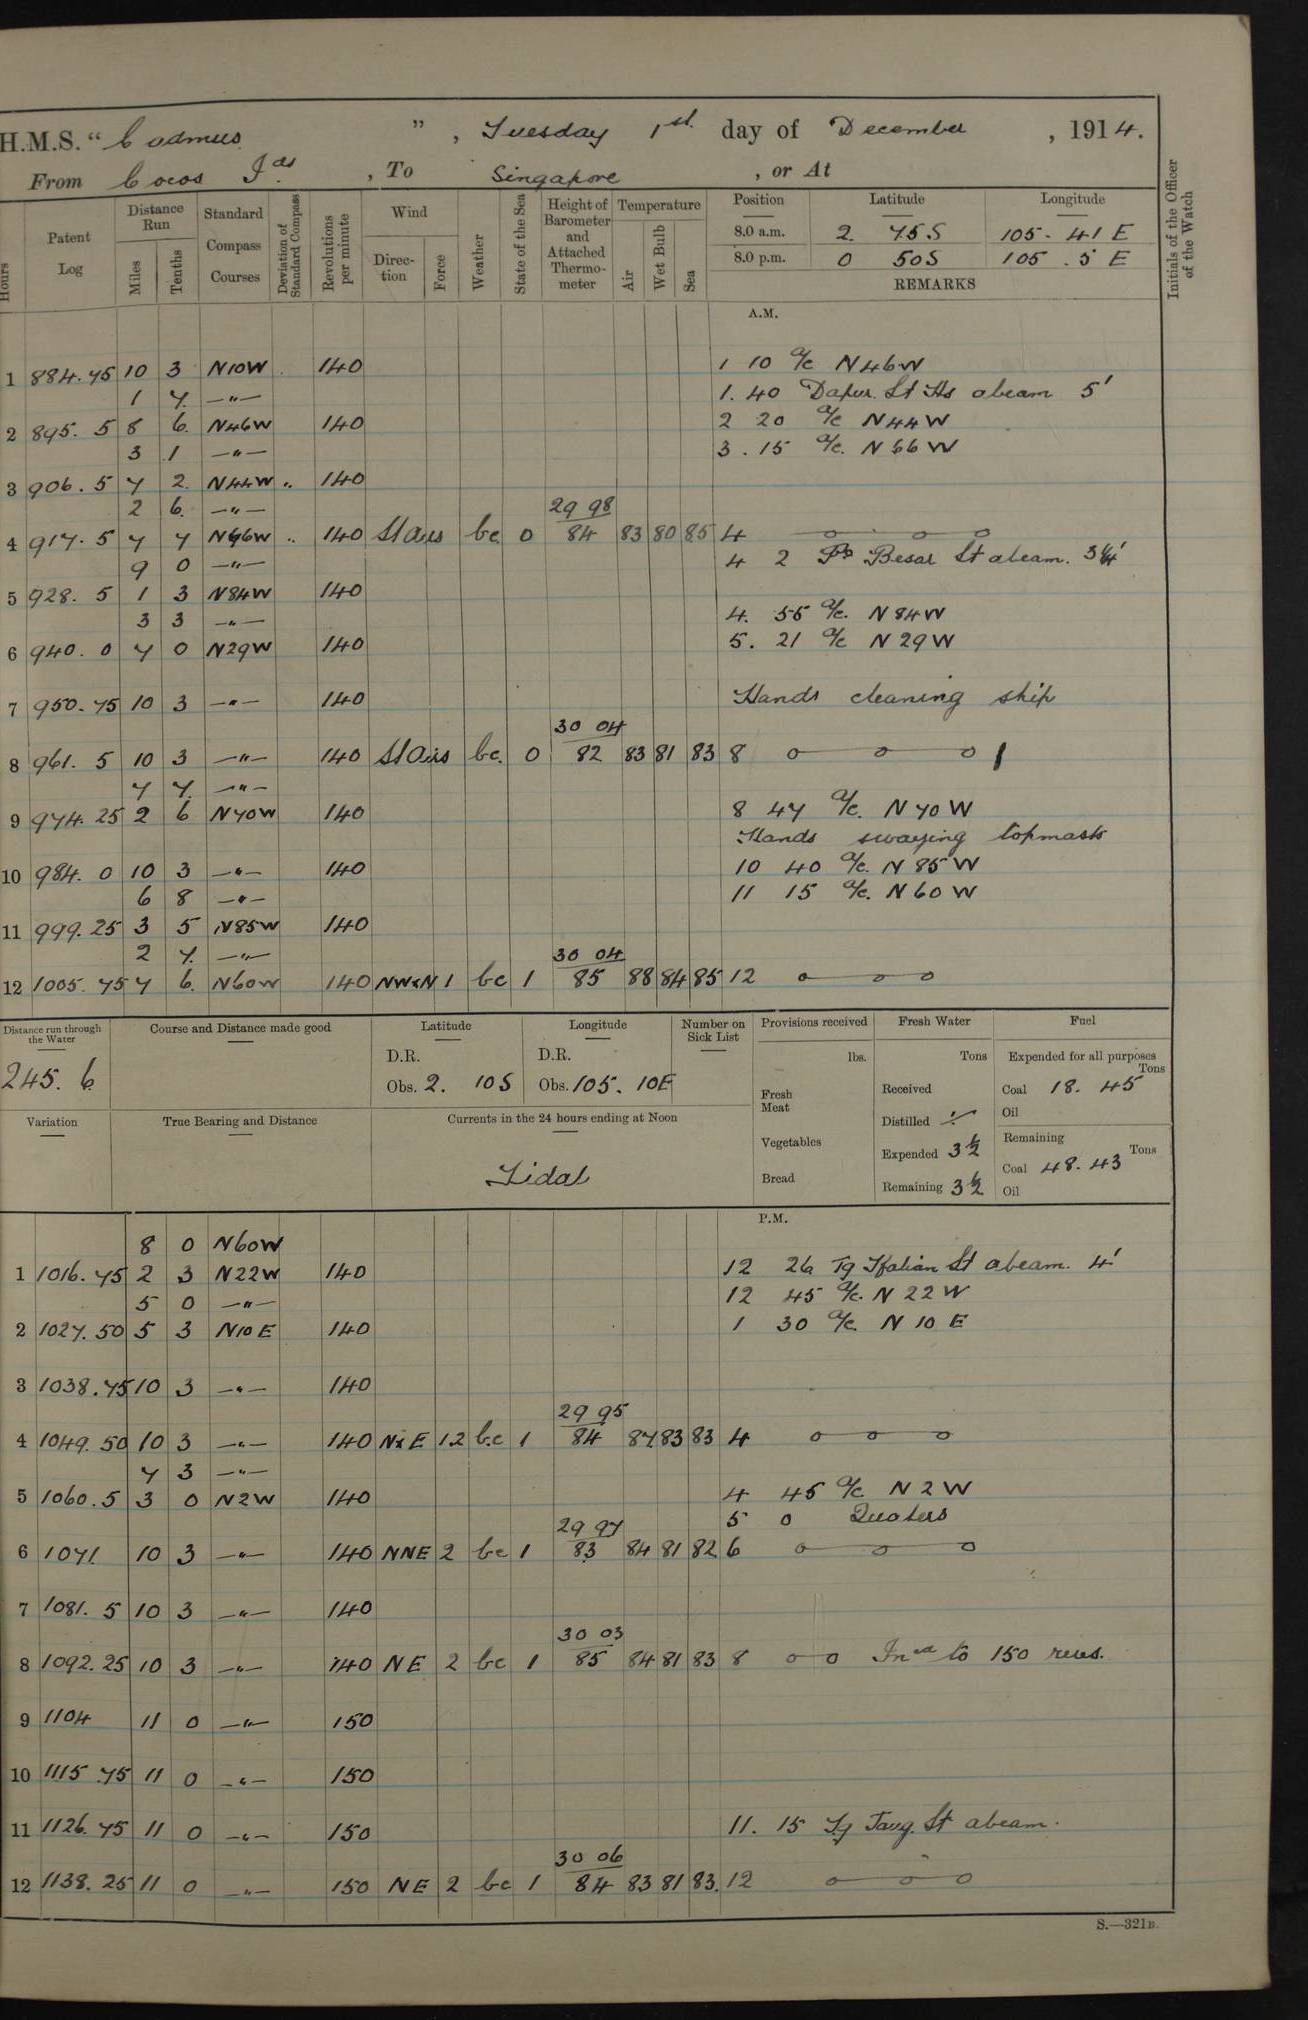 H.M.S. "Cadmus", Tuesday 1st day of December, 1914.
From Cocos Ids, To Singapore, or At
Hours
Patent Log
Distance Run
Miles
Tenths
Standard Compass Courses
Deviation of Standard Compass
Revolutions per minute
Wind
Direction
Force
Weather
State of the Sea
Height of Barometer and Attached Thermometer
Temperature
Air
Wet Bulb
Sea
Position Latitude Longitude
8.0 a.m. 2. 45 S 105 - 41 E
8.0 p.m. 0 50 S 105 . 5 E
REMARKS
Initials of the Officer of the Watch
A.M.
1 884.75 10 3 N10W 140 1 10 a/c N46W
1 7 —"— 1.40 Dapur Lt Hs abeam 5'
2 895.5 8 6 N46W 140 2 20 a/c N44W
3 1 —"— 3.15 a/c. N66W
3 906.5 7 2 N44W 140
2 6 —"— 29 98
4 917.5 7 7 N66W 140 Lt airs bc 0 84 83 80 85 4
9 0 —"— 4 2 Besar Lt abeam. 3¼'
5 928.5 1 3 N84W 140
3 3 —"— 4. 55 a/c. N84W
6 940.0 7 0 N29W 140 5. 21 a/c N29W
7 950.75 10 3 —"— 140 Hands cleaning ship
30 04
8 961.5 10 3 —"— 140 Lt airs bc. 0 82 83 81 83 8
7 7 —"—
9 974.25 2 6 N70W 140 8 47 a/c. N70W
Hands swaying topmasts
10 984.0 10 3 —"— 140 10 40 a/c. N85W
6 8 —"— 11 15 a/c. N60W
11 999.25 3 5 N85W 140
2 7 —"— 30 04
12 1005.75 7 6 N60W 140 NWxN 1 bc 1 85 88 84 85 12
Distance run through the Water
245.6
Course and Distance made good
Latitude
D.R.
Obs. 2. 10S
Longitude
D.R.
Obs. 105. 10E
Number on Sick List
Provisions received
lbs.
Fresh Meat
Vegetables
Bread
Fresh Water
Tons
Received
Distilled
Expended 3½
Remaining 3½
Fuel
Expended for all purposes
Tons
Coal 18.45
Oil
Remaining
Tons
Coal 48.43
Oil
Variation
True Bearing and Distance
Currents in the 24 hours ending at Noon
Tidal
P.M.
8 0 N60W
1 1016.75 2 3 N22W 140 12 26 Tg Kalian Lt abeam. 4'
5 0 —"— 12 45 a/c. N22W
2 1027.50 5 3 N10E 140 1 30 a/c. N10E
3 1038.75 10 3 —"— 140
29 95
4 1049.50 10 3 —"— 140 NxE 1.2 bc 1 84 87 83 83 4
7 3 —"—
5 1060.5 3 0 N2W 140 4 45 a/c. N2W
5 0 Quarters
29 97
6 1071 10 3 —"— 140 NNE 2 bc 1 83 84 81 82 6
7 1081.5 10 3 —"— 140
30 03
8 1092.25 10 3 —"— 140 NE 2 bc 1 85 84 81 83 8 Incd to 150 revs.
9 1104 11 0 —"— 150
10 1115.75 11 0 —"— 150
11 1126.75 11 0 —"— 150 11. 15 Tg Jang Lt abeam.
30 06
12 1138.25 11 0 —"— 150 NE 2 bc 1 84 83 81 83. 12
S.—321B.